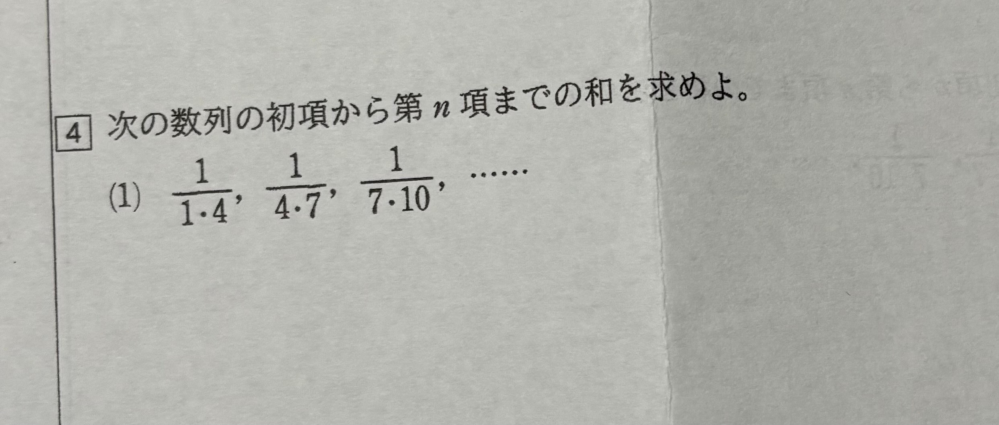 4 次の数列の初項から第 n 項までの和を求めよ。
(1) 1/1·4, 1/4·7, 1/7·10, ……